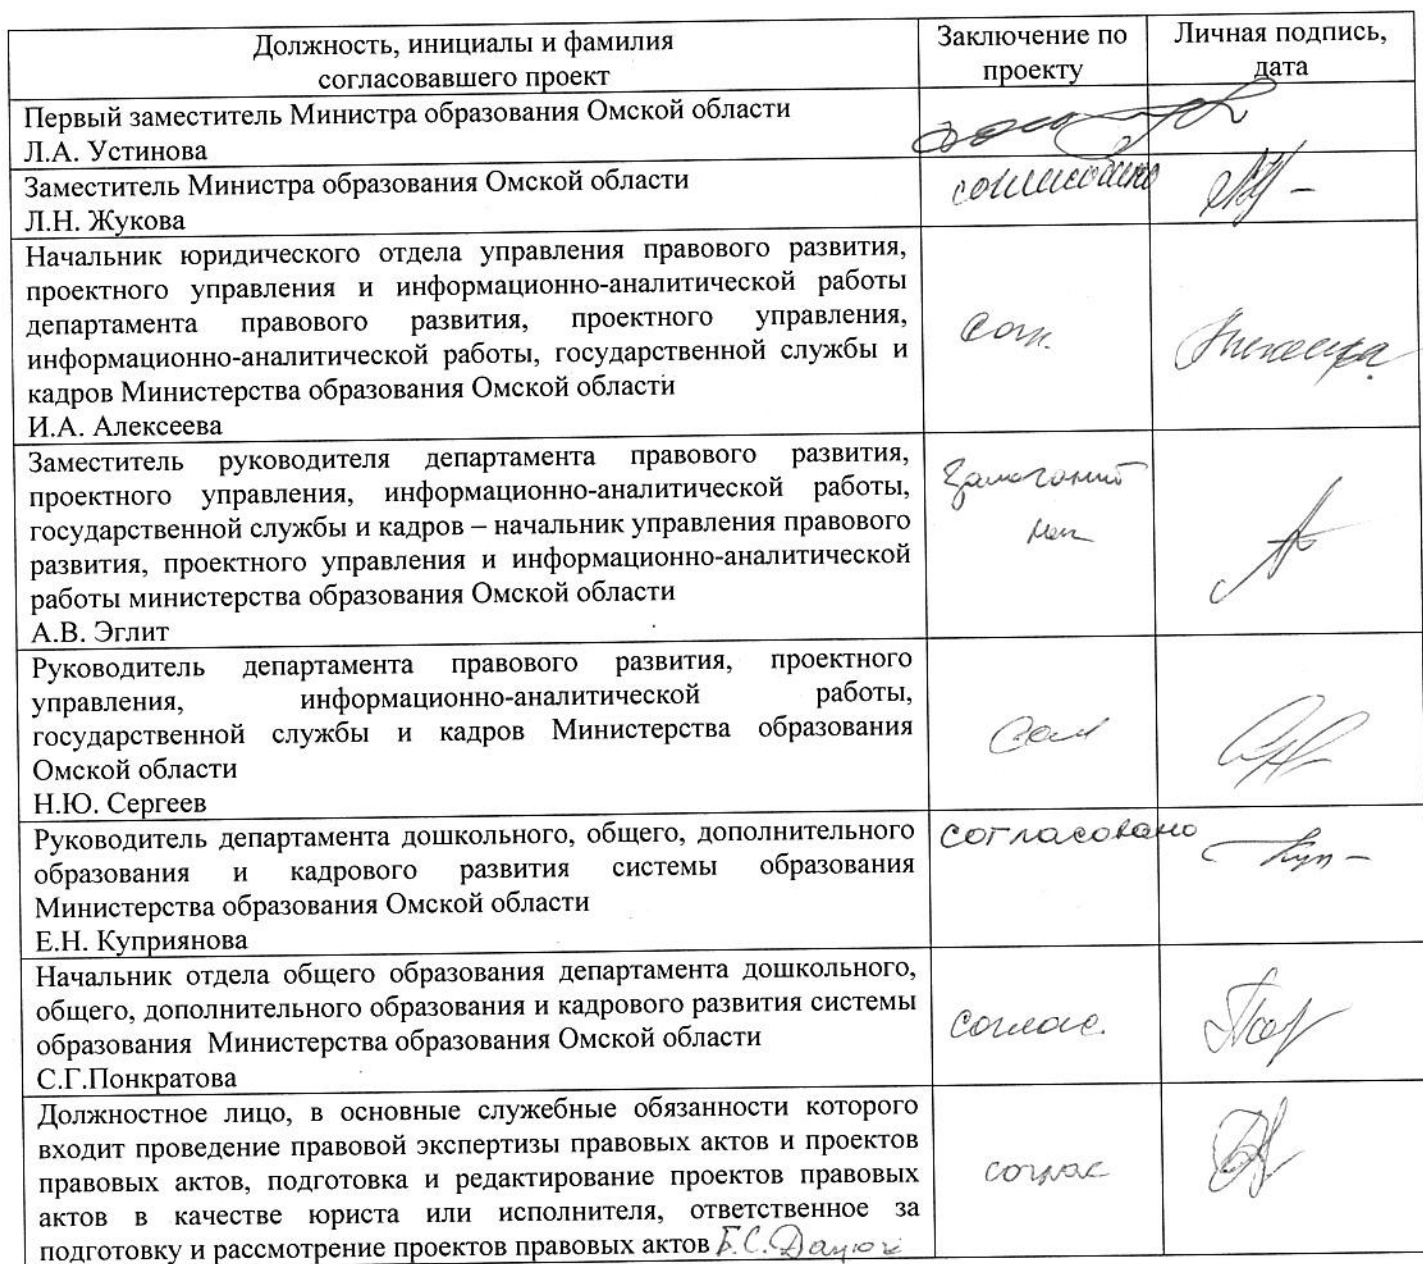 Должность, инициалы и фамилия
согласовавшего проект
Заключение по
проекту
Личная подпись,
дата
Первый заместитель Министра образования Омской области
Л.А. Устинова
Заместитель Министра образования Омской области
Л.Н. Жукова
согласовано
Начальник юридического отдела управления правового развития,
проектного управления и информационно-аналитической работы
департамента правового развития, проектного управления,
информационно-аналитической работы, государственной службы и
кадров Министерства образования Омской области
И.А. Алексеева
Согл.
Заместитель руководителя департамента правового развития,
проектного управления, информационно-аналитической работы,
государственной службы и кадров – начальник управления правового
развития, проектного управления и информационно-аналитической
работы министерства образования Омской области
А.В. Эглит
Руководитель департамента правового развития, проектного
управления, информационно-аналитической работы,
государственной службы и кадров Министерства образования
Омской области
Н.Ю. Сергеев
Руководитель департамента дошкольного, общего, дополнительного
образования и кадрового развития системы образования
Министерства образования Омской области
Е.Н. Куприянова
согласовано
Начальник отдела общего образования департамента дошкольного,
общего, дополнительного образования и кадрового развития системы
образования Министерства образования Омской области
С.Г.Понкратова
соглас.
Должностное лицо, в основные служебные обязанности которого
входит проведение правовой экспертизы правовых актов и проектов
правовых актов, подготовка и редактирование проектов правовых
актов в качестве юриста или исполнителя, ответственное за
подготовку и рассмотрение проектов правовых актов Б.С.
соглас